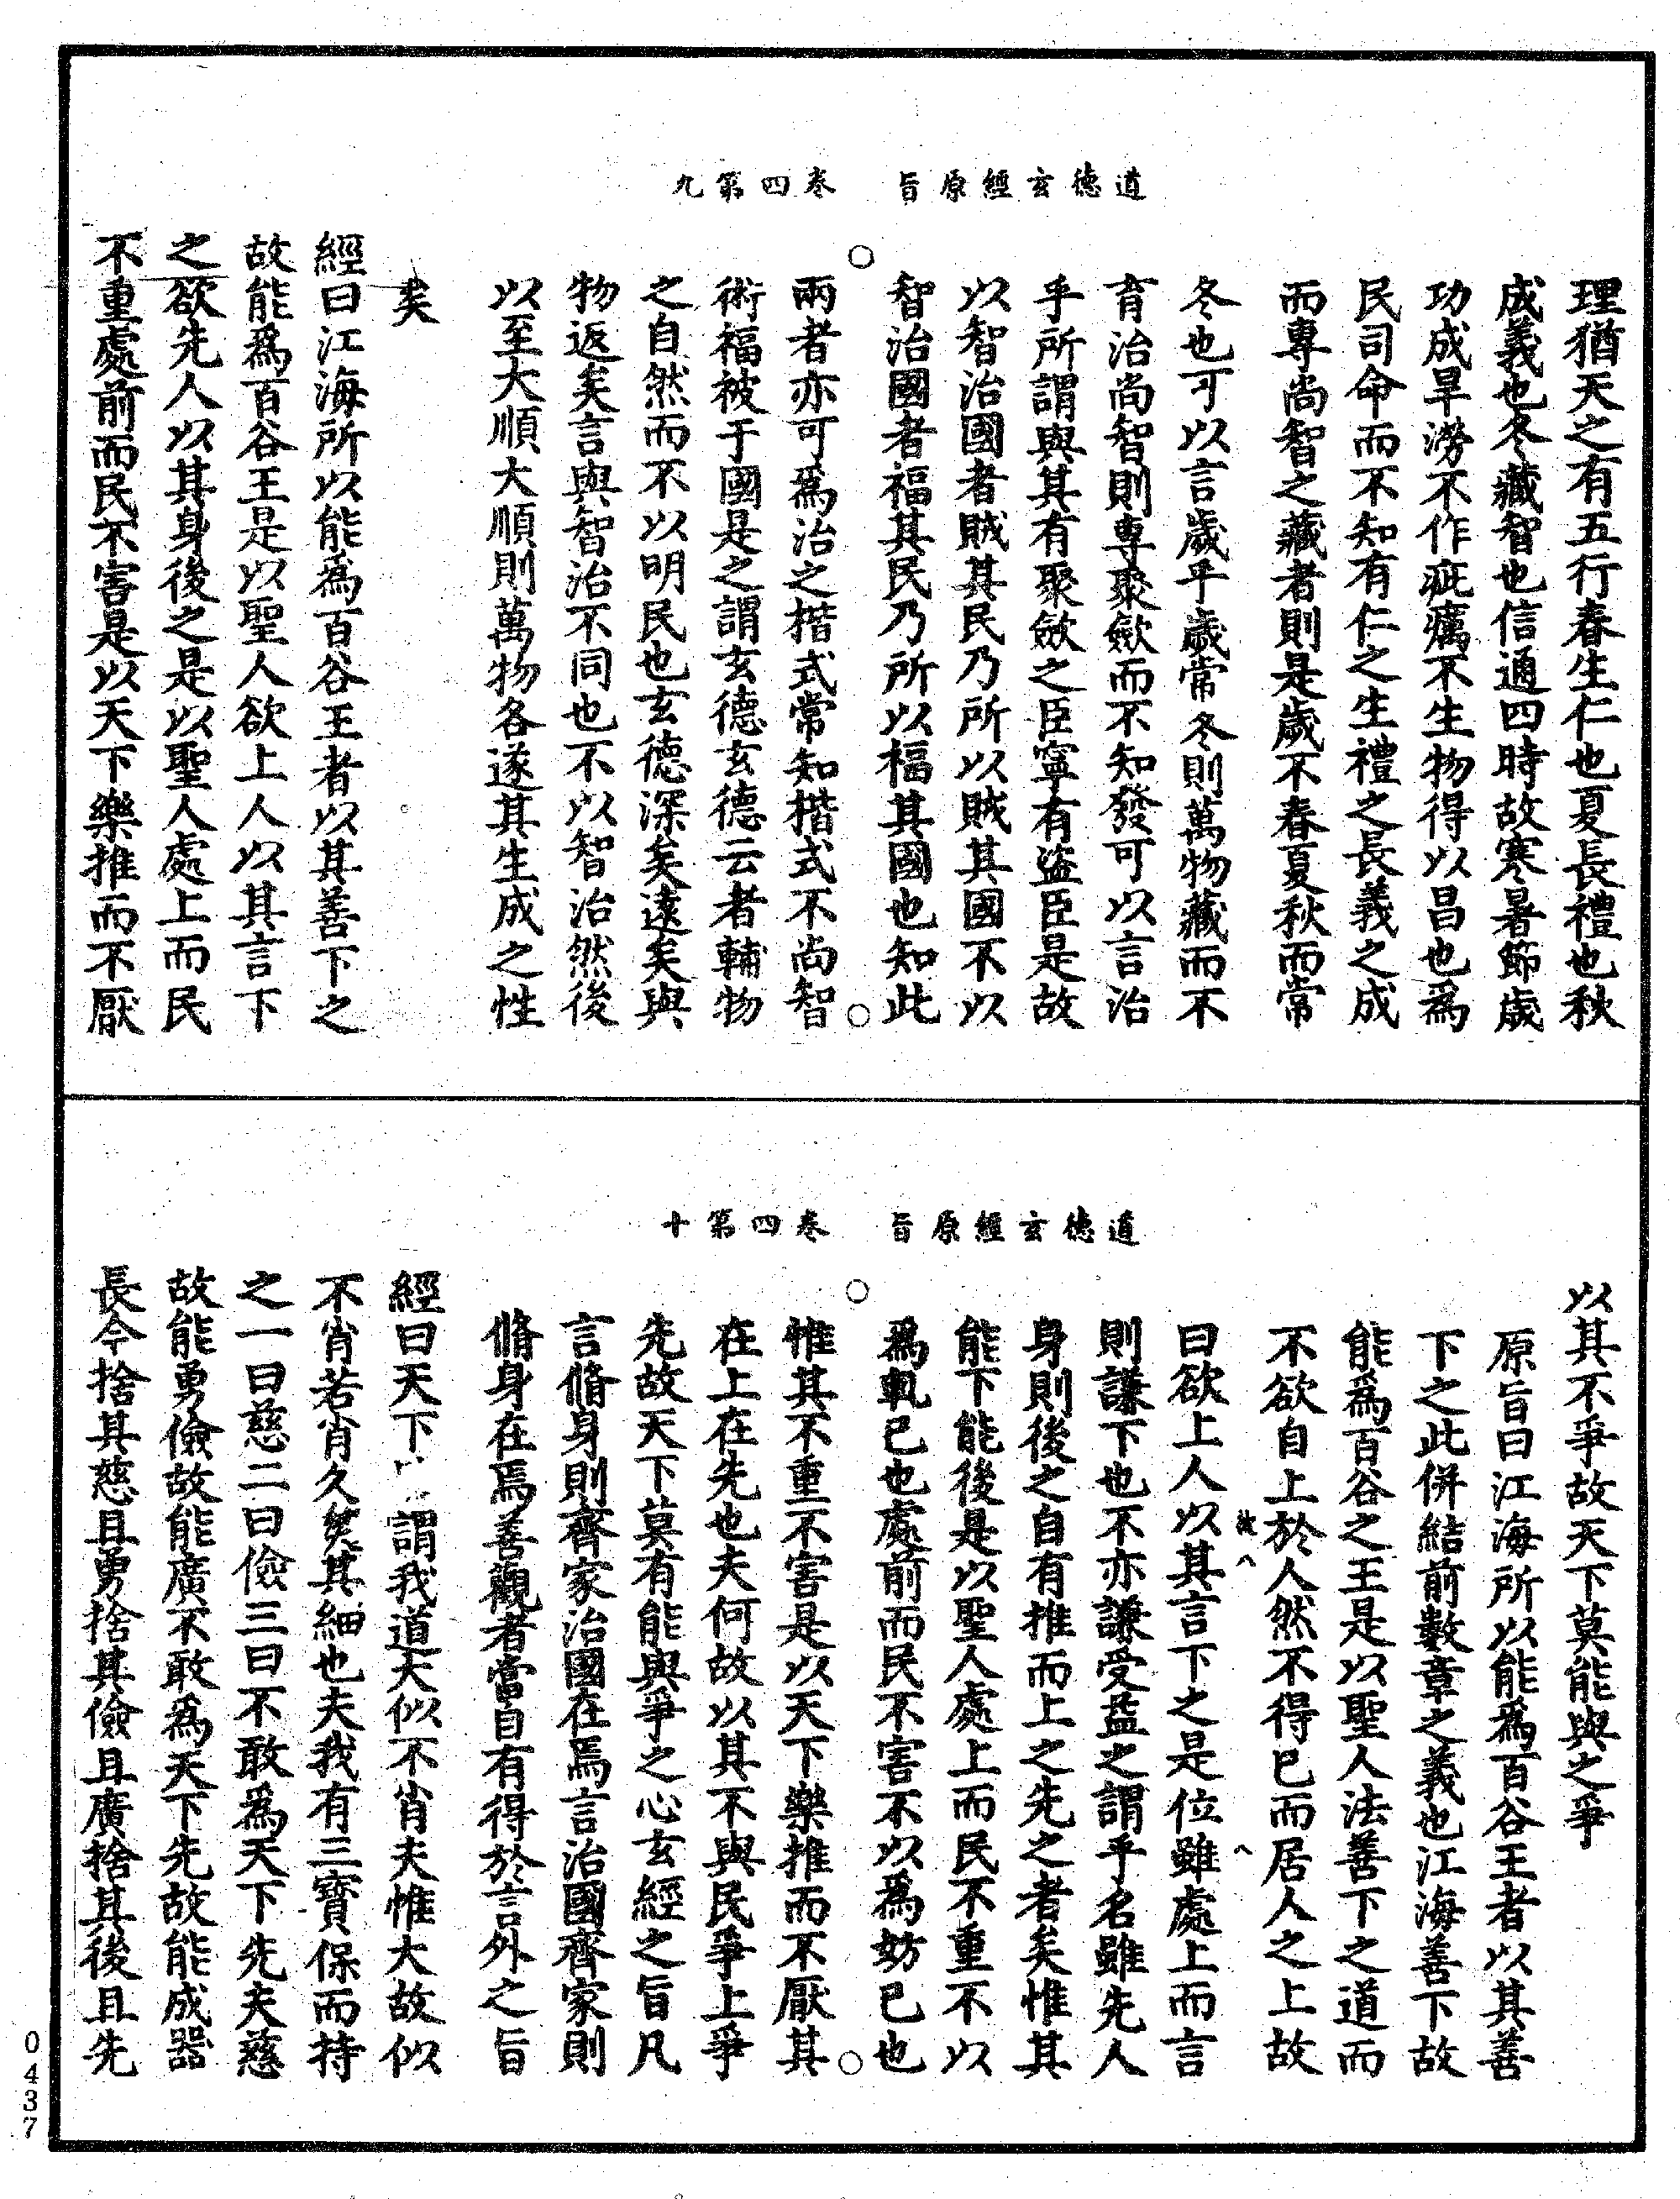 道德玄經原旨　卷四第九
理猶天之有五行春生仁也夏長禮也秋
成義也冬藏智也信通四時故寒暑節歲
功成旱澇不作疵癘不生物得以昌也爲
民司命而不知有仁之生禮之長義之成
而專尚智之藏者則是歲不春夏秋而常
冬也可以言歲乎歲常冬則萬物藏而不
育治尚智則專聚斂而不知發可以言治
乎所謂與其有聚斂之臣寧有盜臣是故
以智治國者賊其民乃所以賊其國不以
智治國者福其民乃所以福其國也知此
兩者亦可爲治之楷式常知楷式不尚智
術福被于國是之謂玄德玄德云者輔物
之自然而不以明民也玄德深矣遠矣與
物返矣言與智治不同也不以智治然後
以至大順大順則萬物各遂其生成之性
矣
經曰江海所以能爲百谷王者以其善下之
故能爲百谷王是以聖人欲上人以其言下
之欲先人以其身後之是以聖人處上而民
不重處前而民不害是以天下樂推而不厭
道德玄經原旨　卷四第十
以其不爭故天下莫能與之爭
原旨曰江海所以能爲百谷王者以其善
下之此併結前數章之義也江海善下故
能爲百谷之王是以聖人法善下之道而
不欲自上於人然不得已而居人之上故
曰欲上人以其言下之是位雖處上而言
則謙下也不亦謙受益之謂乎名雖先人
身則後之自有推而上之先之者矣惟其
能下能後是以聖人處上而民不重不以
爲軋已也處前而民不害不以爲妨已也
惟其不重不害是以天下樂推而不厭其
在上在先也夫何故以其不與民爭上爭
先故天下莫有能與爭之心玄經之旨凡
言脩身則齊家治國在焉言治國齊家則
脩身在焉善觀者當自有得於言外之旨
經曰天下謂我道大似不肖夫惟大故似
不肖若肖久矣其細也夫我有三寶保而持
之一曰慈二曰儉三曰不敢爲天下先夫慈
故能勇儉故能廣不敢爲天下先故能成器
長今捨其慈且勇捨其儉且廣捨其後且先
0437